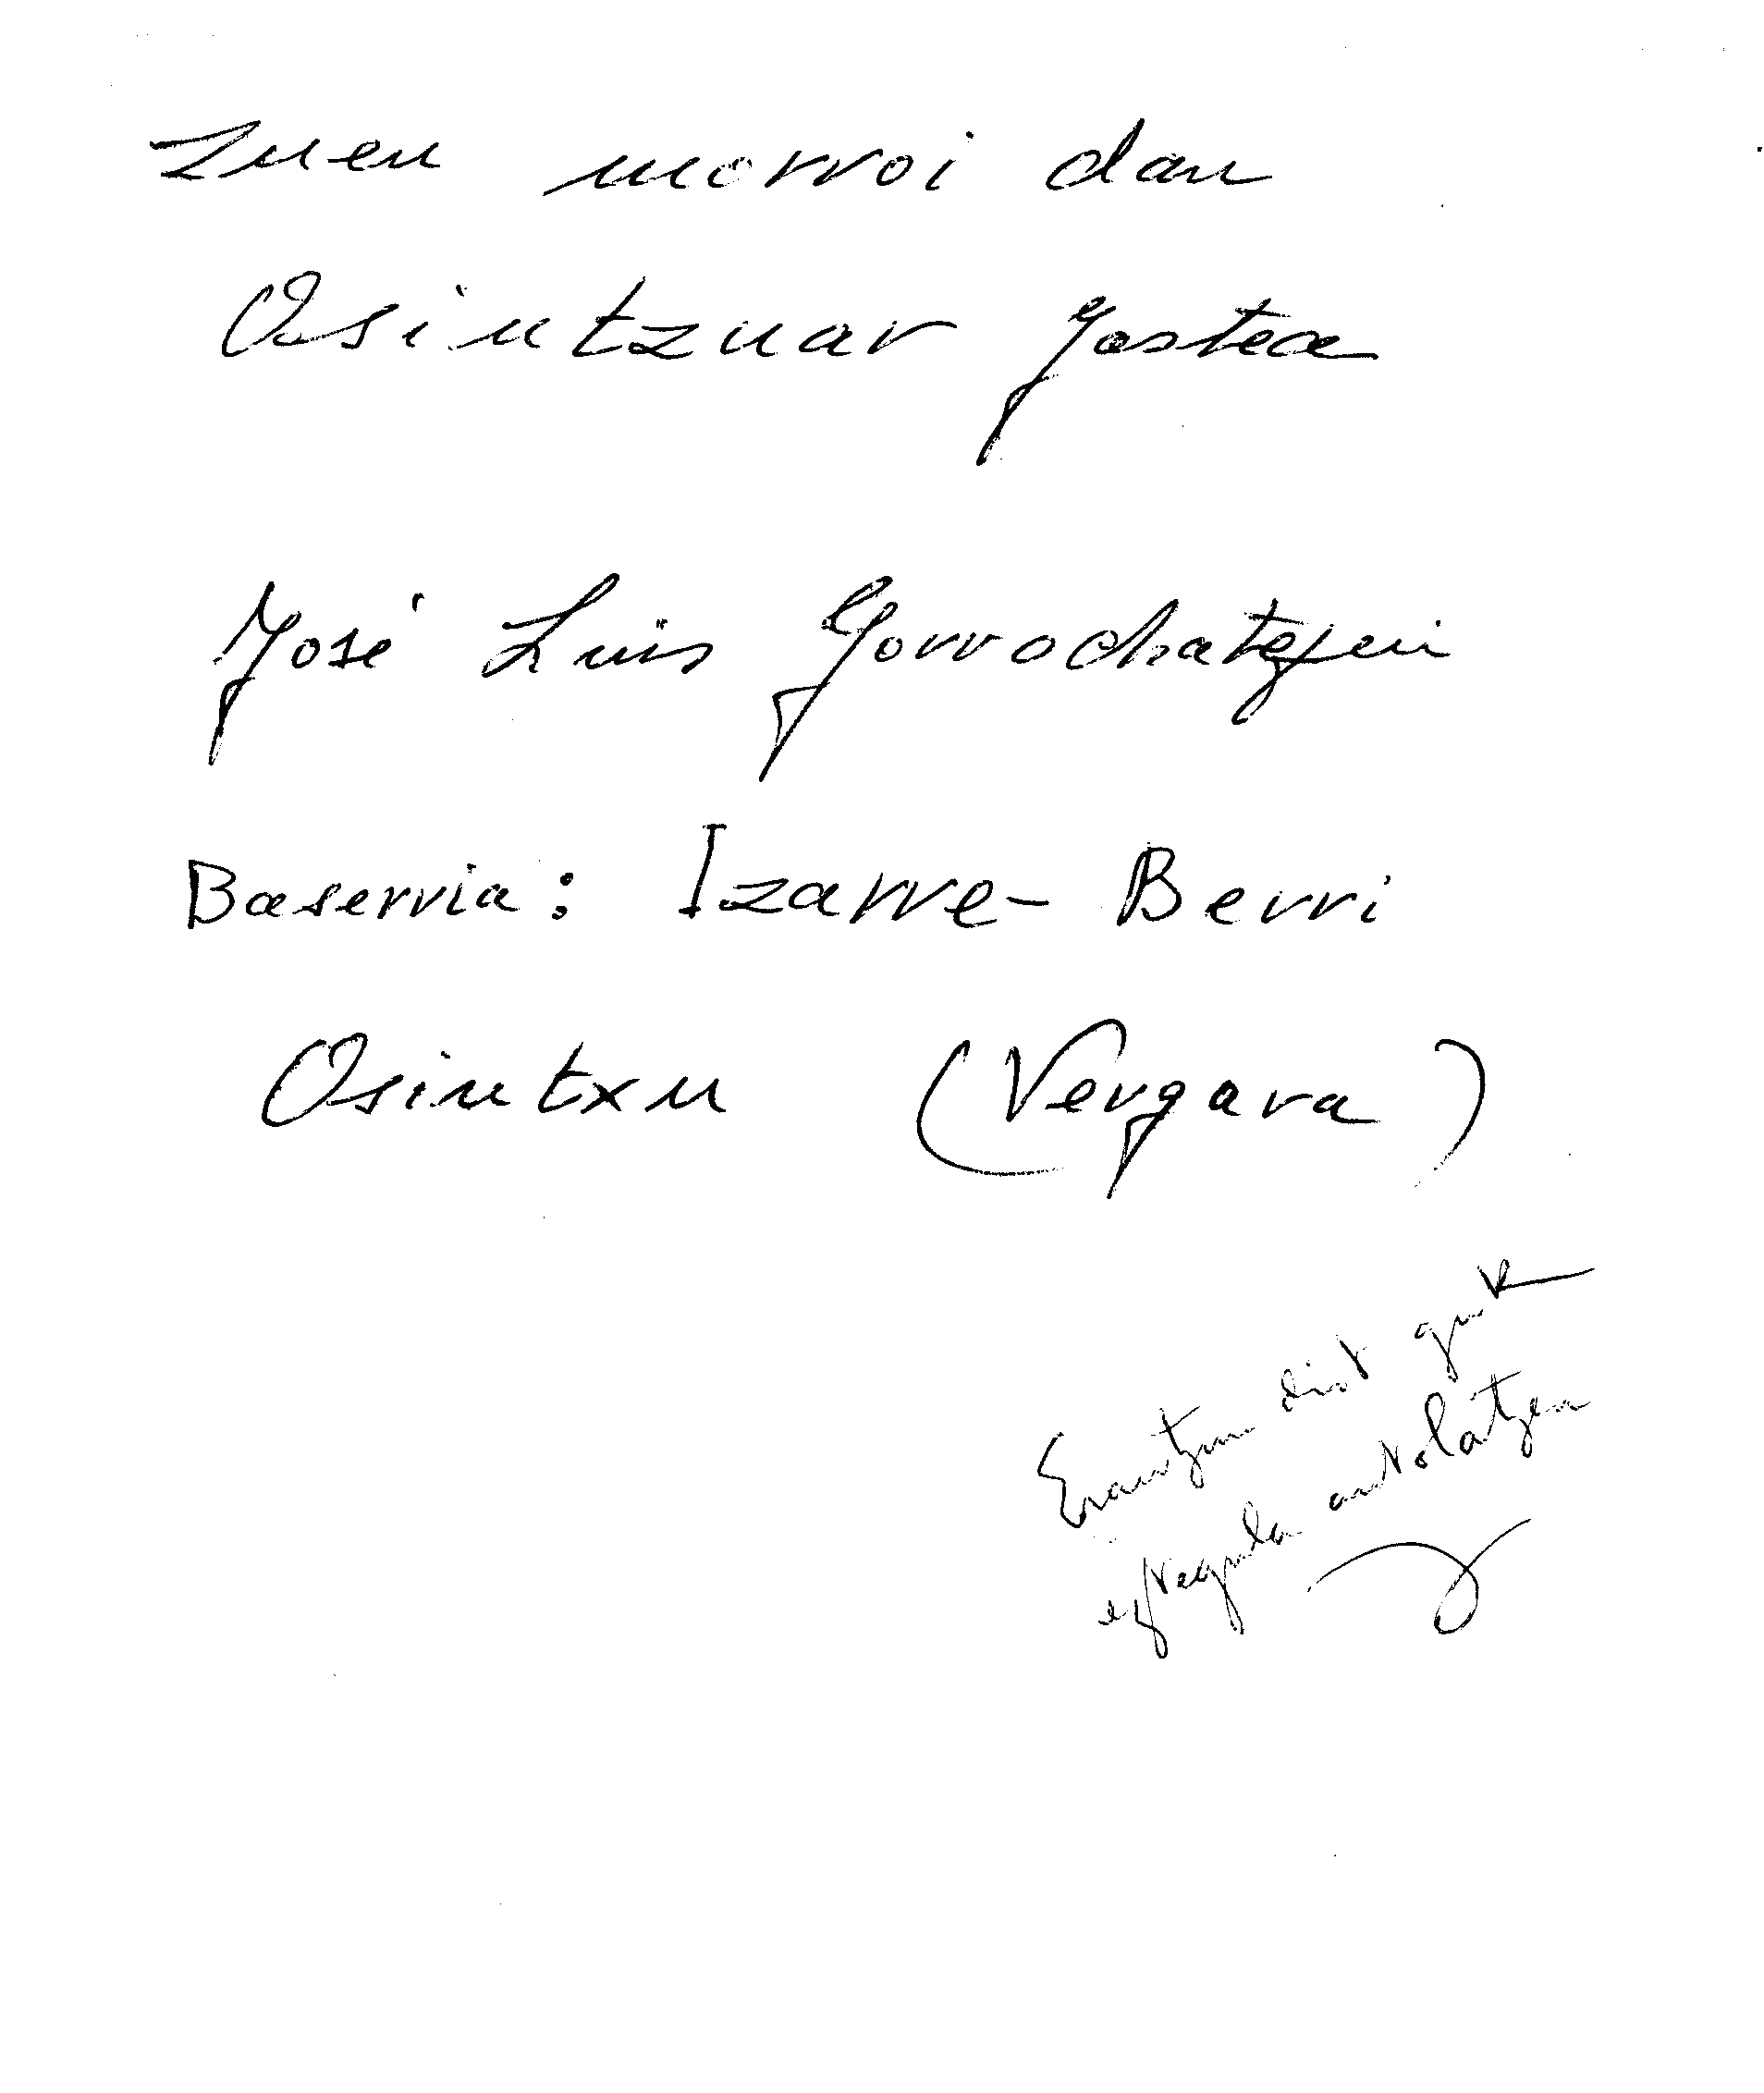 Zuen morroi dan
Osintzuar Gaztea
José Luis Gorrochategui
Baserria: Izarre-Berri
Osintxu (Vergara)
Erantzun diot guk
eztegula antolatzen